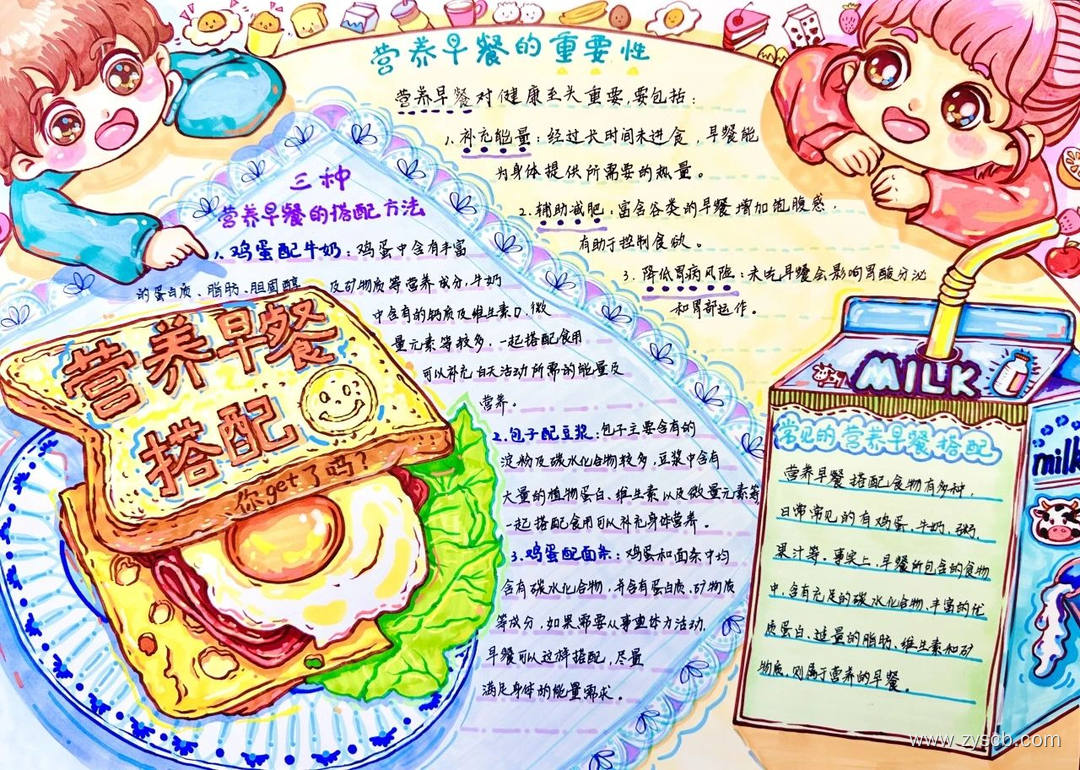 营养早餐的重要性
营养早餐对健康至关重要,要包括:
1.补充能量:经过长时间未进食,早餐能
为身体提供所需要的热量。
2.辅助减肥:富含谷类的早餐增加饱腹感,
有助于控制食欲。
3.降低胃病风险:未吃早餐会影响胃酸分泌
和胃部运作。
三种
营养早餐的搭配方法
1.鸡蛋配牛奶:鸡蛋中含有丰富
的蛋白质、脂肪、胆固醇 及矿物质等营养成分,牛奶
中含有的钙质及维生素D,微
量元素等较多,一起搭配食用
可以补充白天活动所需的能量及
营养。
2.包子配豆浆:包子主要含有的
淀粉及碳水化合物较多,豆浆中含有
大量的植物蛋白、维生素以及微量元素等
一起搭配食用可以补充身体营养。
3.鸡蛋配面条:鸡蛋和面条中均
含有碳水化合物,并含有蛋白质、矿物质
等成分,如果需要从事重体力活动,
早餐可以这样搭配,尽量
满足身体的能量需求。
营养早餐
搭配
你get了吗?
MILK
常见的营养早餐搭配
营养早餐搭配食物有多种,
日常常见的有鸡蛋、牛奶、粥、
果汁等,事实上,早餐所包含的食物
中,含有充足的碳水化合物、丰富的优
质蛋白、适量的脂肪、维生素和矿
物质,则属于营养的早餐。
milk
www.zyscb.com